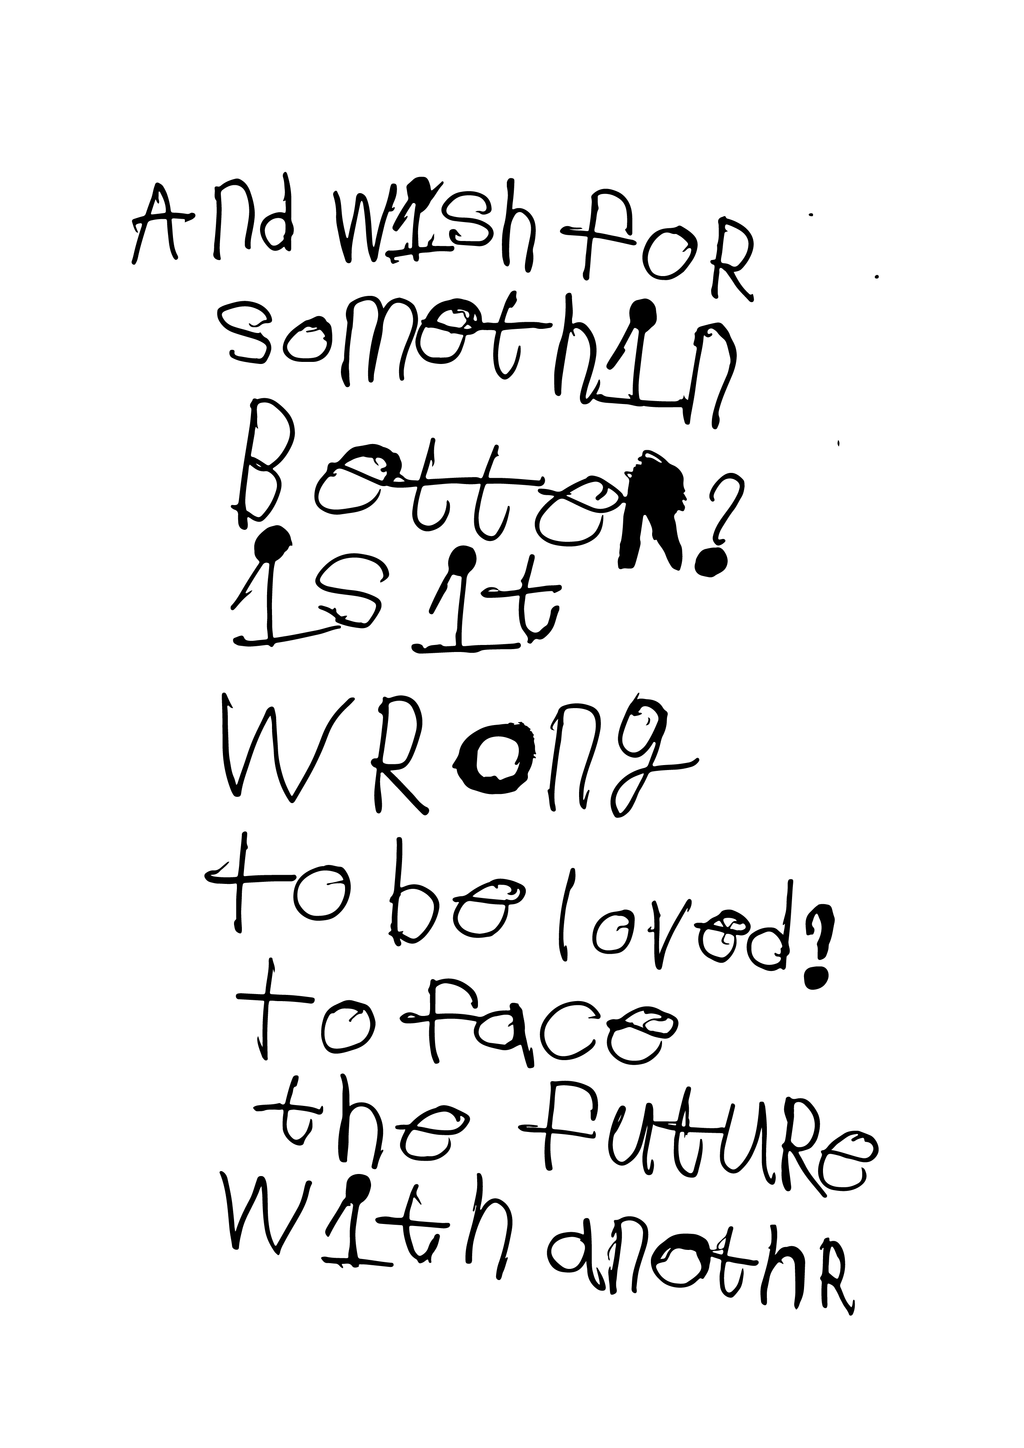 And wish for
somethin
Better?
is it
WRong
to be loved?
to face
the future
with anothR